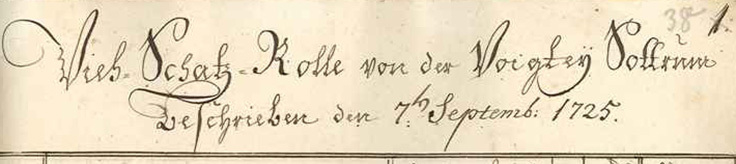 38 1.
Vieh-Schatz-Rolle von der Voigtey Sottrum
beschrieben den 7ᵗ Septemb: 1725.